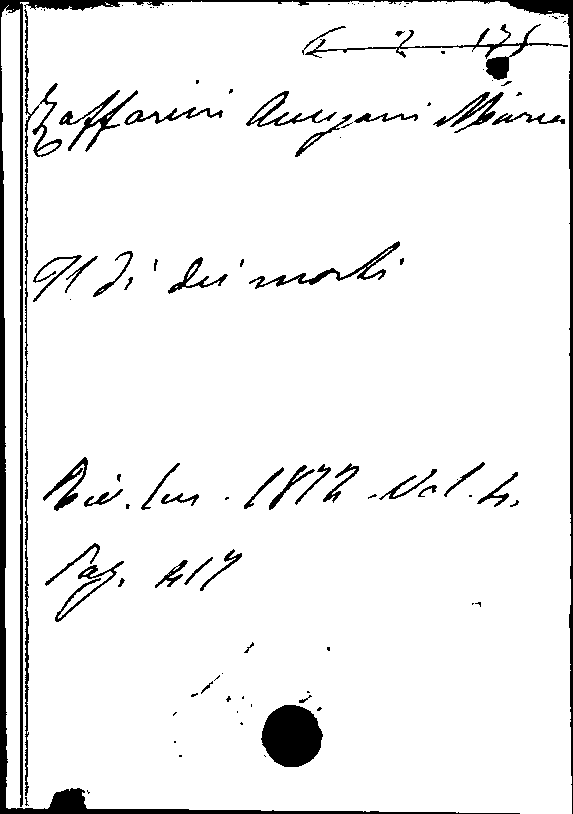 6. 2. 175
Zaffarini Maria
Il dì dei morti
Riv. 1872 - Vol. 4.
Pag. 417